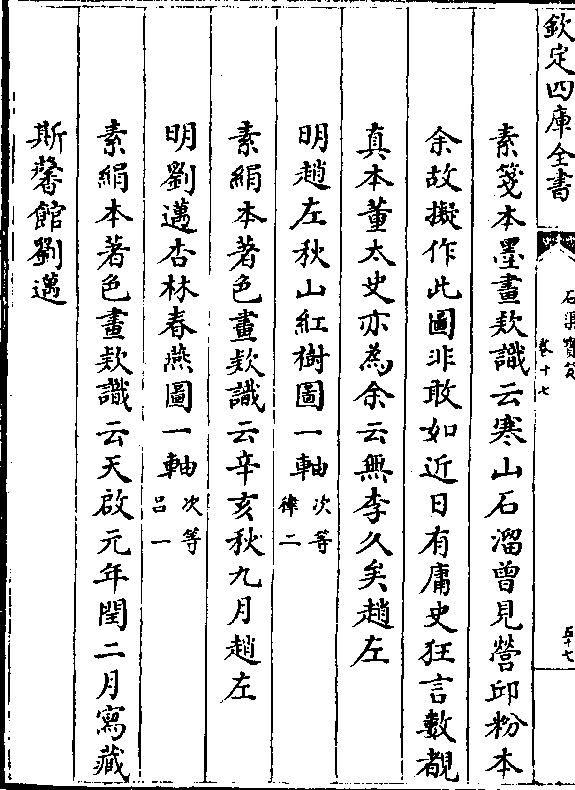 欽定四庫全書
石渠寶笈
卷十七
五十七
素箋本墨畫欵識云寒山石溜曾見營邱粉本
余故擬作此圖非敢如近日有庸史狂言數覩
真本董太史亦為余云無李久矣趙左
明趙左秋山紅樹圖一軸次等律二
素絹本著色畫欵識云辛亥秋九月趙左
明劉邁杏林春燕圖一軸次等吕一
素絹本著色畫欵識云天啟元年閏二月寫藏
斯馨館劉邁